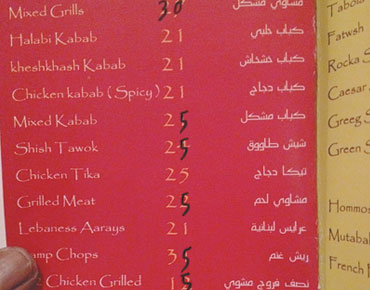 Mixed Grills 30 مشاوي مشكل
Halabi Kabab 21 كباب حلبي
kheshkhash Kabab 21 كباب خشخاش
Chicken kabab ( Spicy ) 21 كباب دجاج
Mixed Kabab 25 كباب مشكل
Shish Tawok 25 شيش طاووق
Chicken Tika 25 تيكا دجاج
Grilled Meat 25 مشاوي لحم
Lebaness Aarays 21 عرايس لبنانية
Chops 35 ريش غنم
Chicken Grilled 15 نصف فروج مشوي
Fatwsh
Rocka S
Caesar
Greeg S
Green S
Hommos
Mutabal
French F